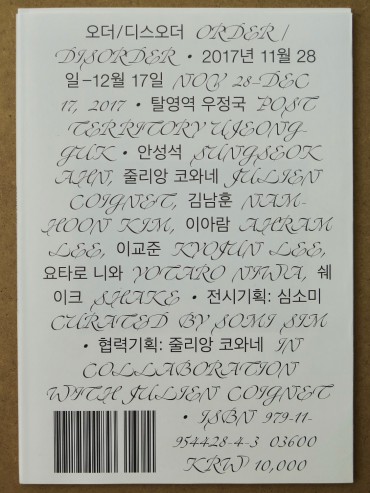 오더/디스오더 ORDER /
DISORDER • 2017년 11월 28
일–12월 17일 NOV 28–DEC
17, 2017 • 탈영역 우정국 POST
TERRITORY UJEONG-
GUK • 안성석 SUNGSEOK
AHN, 줄리앙 코와네 JULIEN
COIGNET, 김남훈 NAM-
HOON KIM, 이아람 AHRAM
LEE, 이교준 KYOJUN LEE,
요타로 니와 YOTARO NIWA, 쉐
이크 SHAKE • 전시기획: 심소미
CURATED BY SOMI SIM
• 협력기획: 줄리앙 코와네 IN
COLLABORATION
WITH JULIEN COIGNET
• ISBN 979-11-
954428-4-3 03600
KRW 10,000